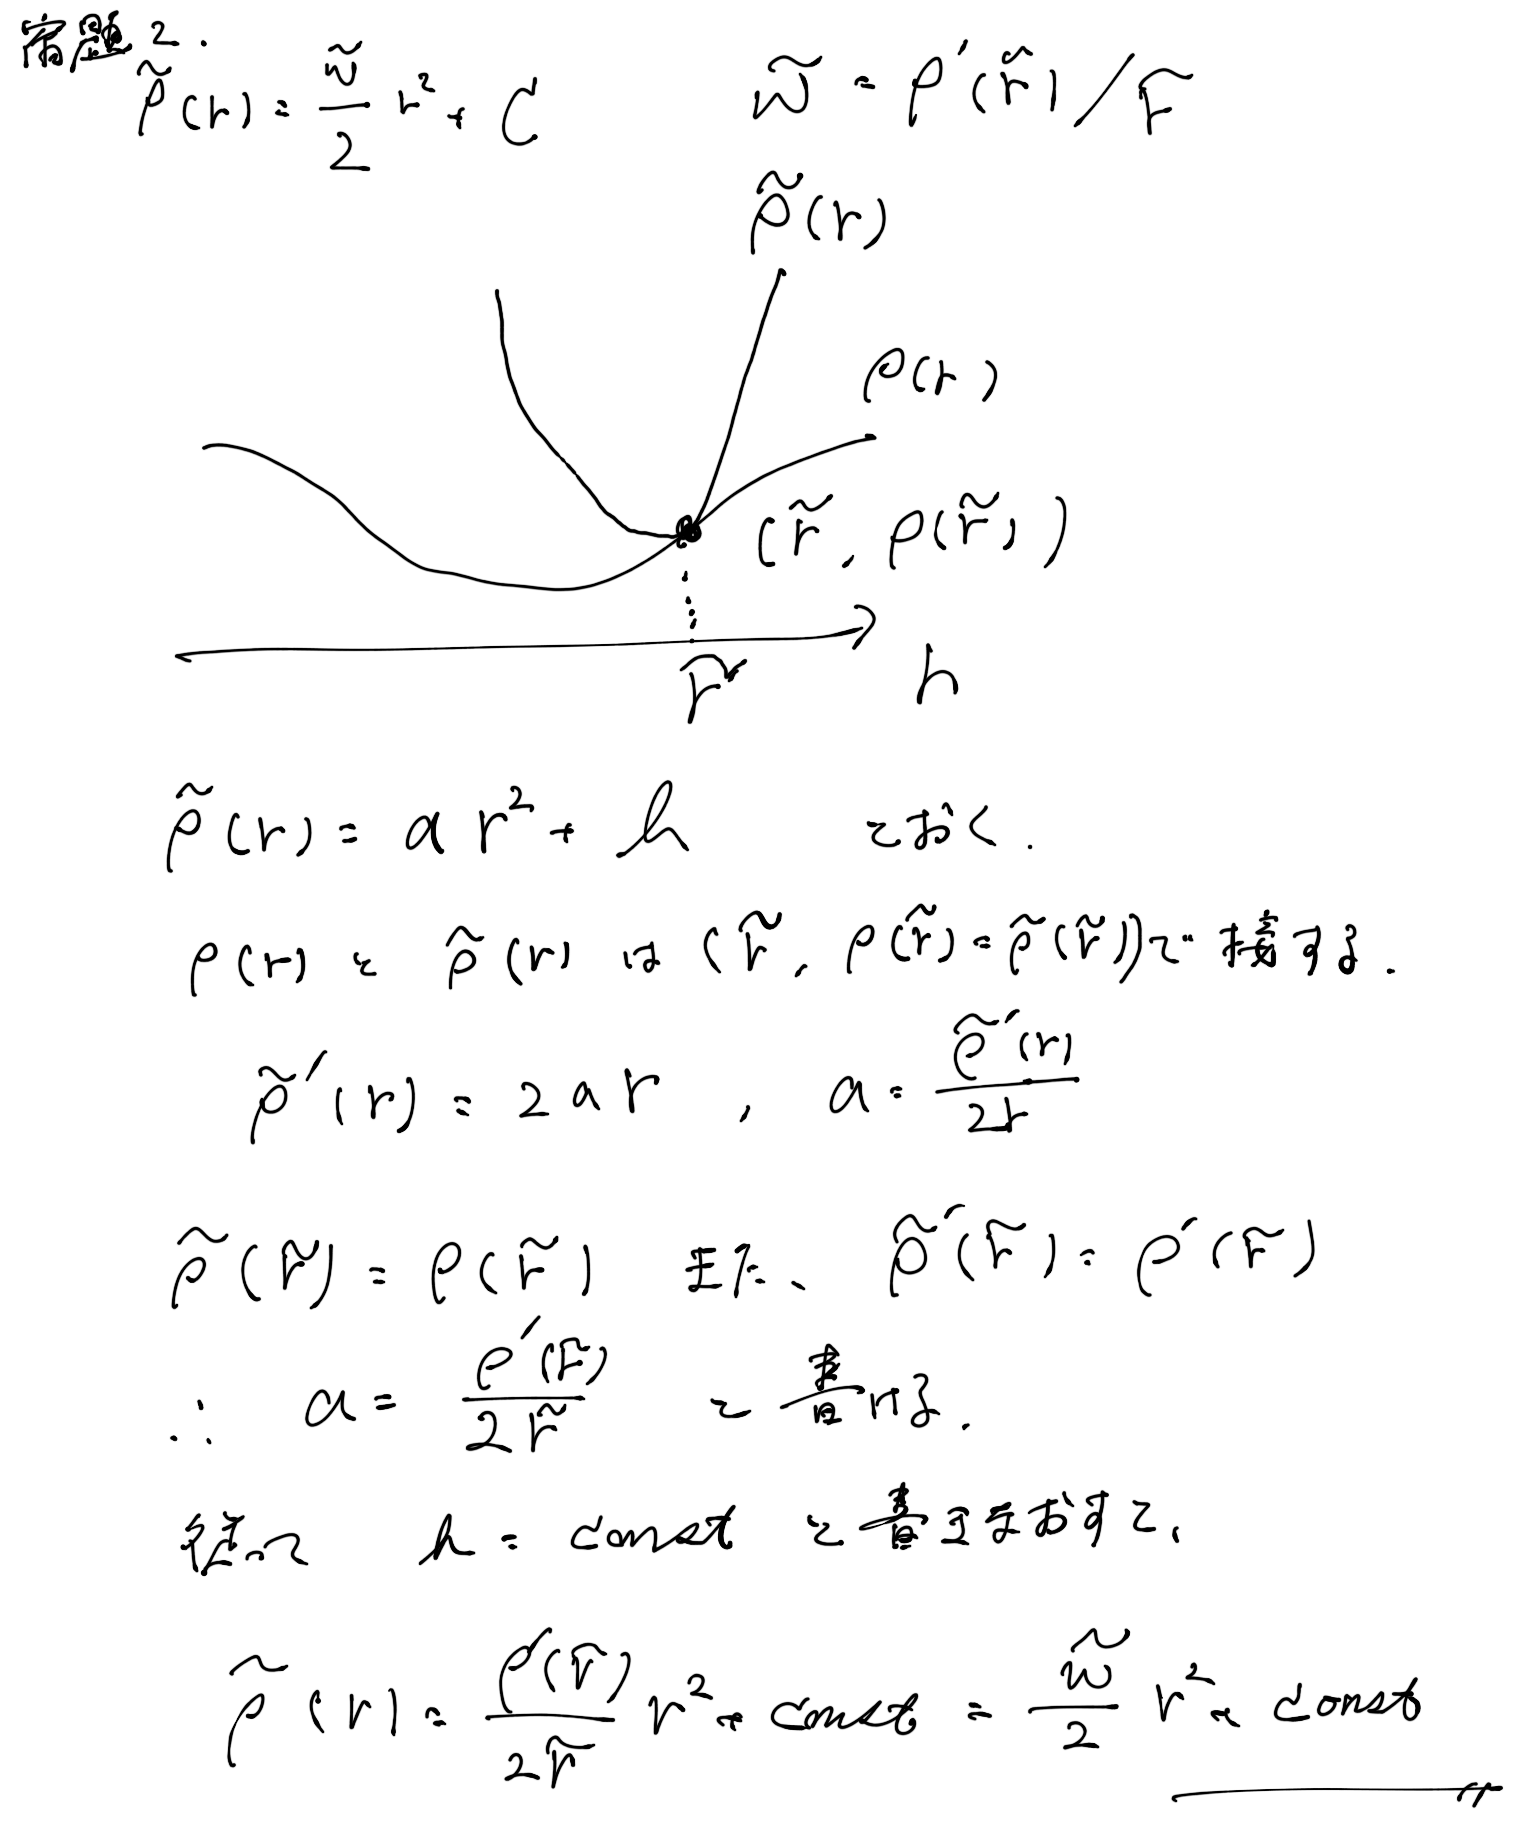 宿題2.
ρ̃(r) = w̃/2 r² + C　　w̃ = ρ'(r̃)/r̃
ρ̃(r)
ρ(r)
(r̃, ρ(r̃))
r̃　h
ρ̃(r) = a r² + h　とおく.
ρ(r) と ρ̃(r) は (r̃, ρ(r̃) = ρ̃(r̃)) で 接する.
ρ̃'(r) = 2ar , a = ρ̃'(r)/2r
ρ̃(r̃) = ρ(r̃) また、 ρ̃'(r̃) = ρ'(r̃)
∴ a = ρ'(r̃)/2r̃ と書ける.
従って h = const と書きなおすと、
ρ̃(r) = ρ'(r̃)/2r̃ r² + const = w̃/2 r² + const